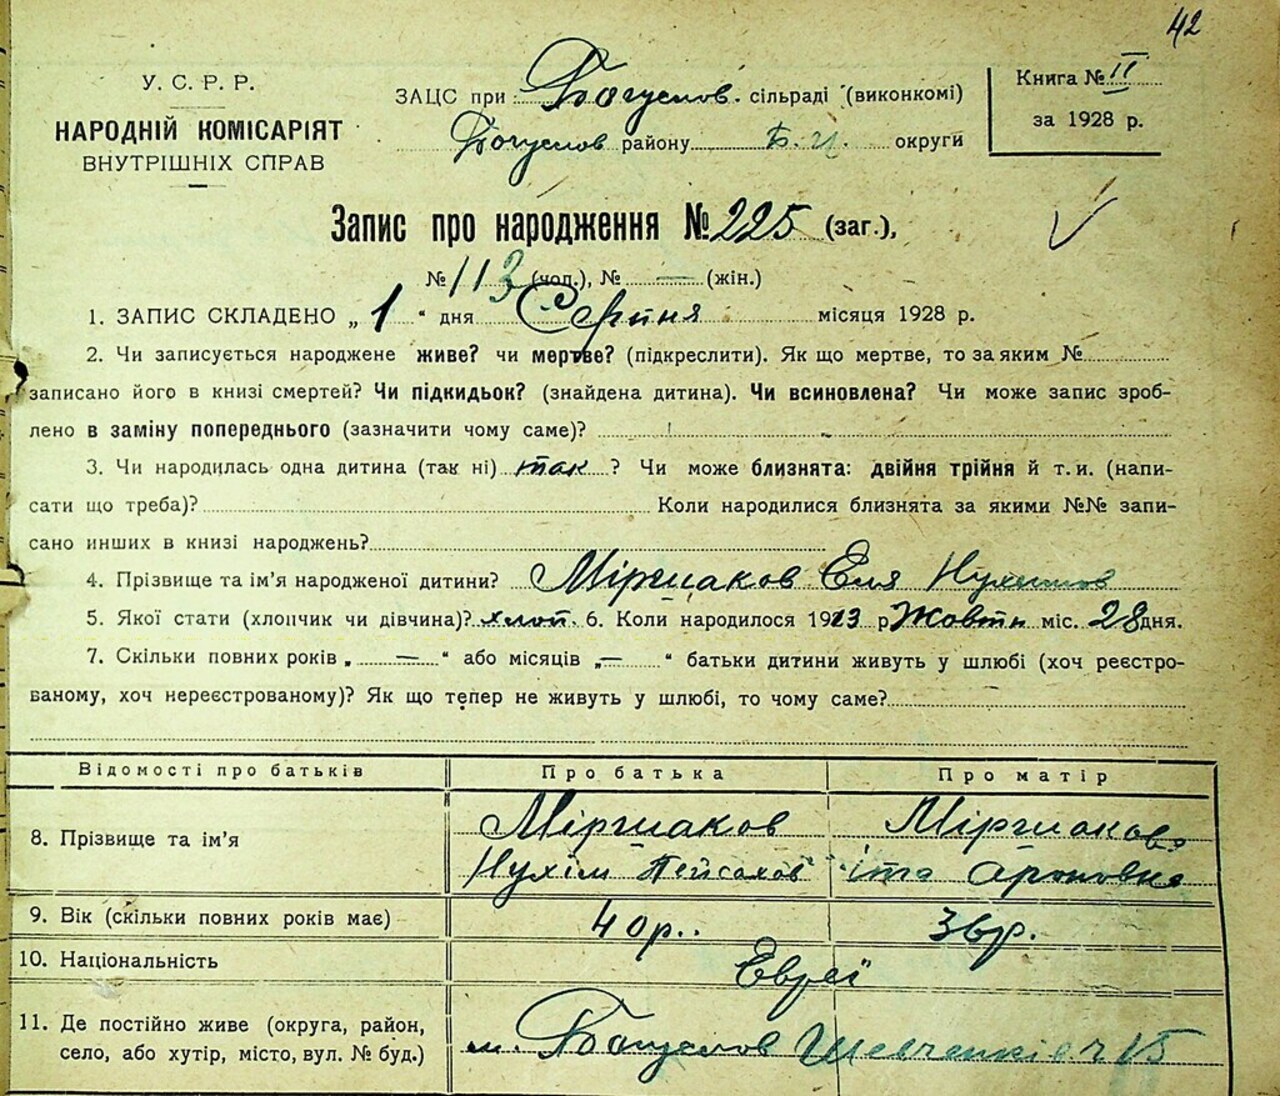 42
У. С. Р. Р.
НАРОДНІЙ КОМІСАРІЯТ
ВНУТРІШНІХ СПРАВ
ЗАЦС при Богуслов. сільраді (виконкомі)
Богуслов району Б. Ц. округи
Книга № II
за 1928 р.
Запис про народження № 225 (заг.),
№ 113 (чол.), № — (жін.)
1. ЗАПИС СКЛАДЕНО „ 1 “ дня Серпня місяця 1928 р.
2. Чи записується народжене живе? чи мертве? (підкреслити). Як що мертве, то за яким №
записано його в книзі смертей? Чи підкидьок? (знайдена дитина). Чи всиновлена? Чи може запис зроб-
лено в заміну попереднього (зазначити чому саме)?
3. Чи народилась одна дитина (так ні) так ? Чи може близнята: двійня трійня й т. и. (напи-
сати що треба)? Коли народилися близнята за якими №№ запи-
сано инших в книзі народжень?
4. Прізвище та ім’я народженої дитини? Еля
5. Якої стати (хлопчик чи дівчина)? хлоп. 6. Коли народилося 1913 р Жовтн міс. 28 дня.
7. Скільки повних років „ — “ або місяців „ — “ батьки дитини живуть у шлюбі (хоч реєстро-
ваному, хоч нереєстрованому)? Як що тепер не живуть у шлюбі, то чому саме?
Відомості про батьків Про батька Про матір
8. Прізвище та ім’я
Нухім Пейсахов Іта Ароновна
9. Вік (скільки повних років має) 40р.. 36р.
10. Національність Евреї
11. Де постійно живе (округа, район,
село, або хутір, місто, вул. № буд.) м. Богуслов 15